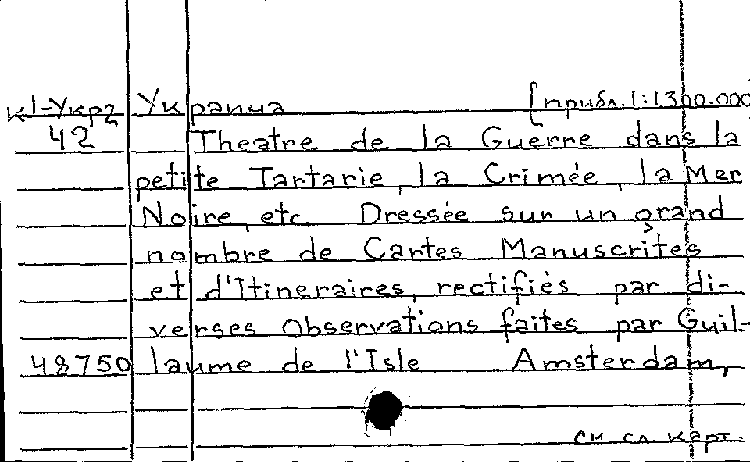 к1-Укр2 Украина [прибл. 1:1300.000
42 Theatre de la Guerre dans la
petite Tartarie, la Crimée, la Mer
Noire, etc. Dressée sur un grand
nombre de Cartes Manuscrites
et d'Itineraires, rectifiés par di-
verses Observations faites par Guil-
48750 laume de l'Isle Amsterdam,
см. сл. карт.